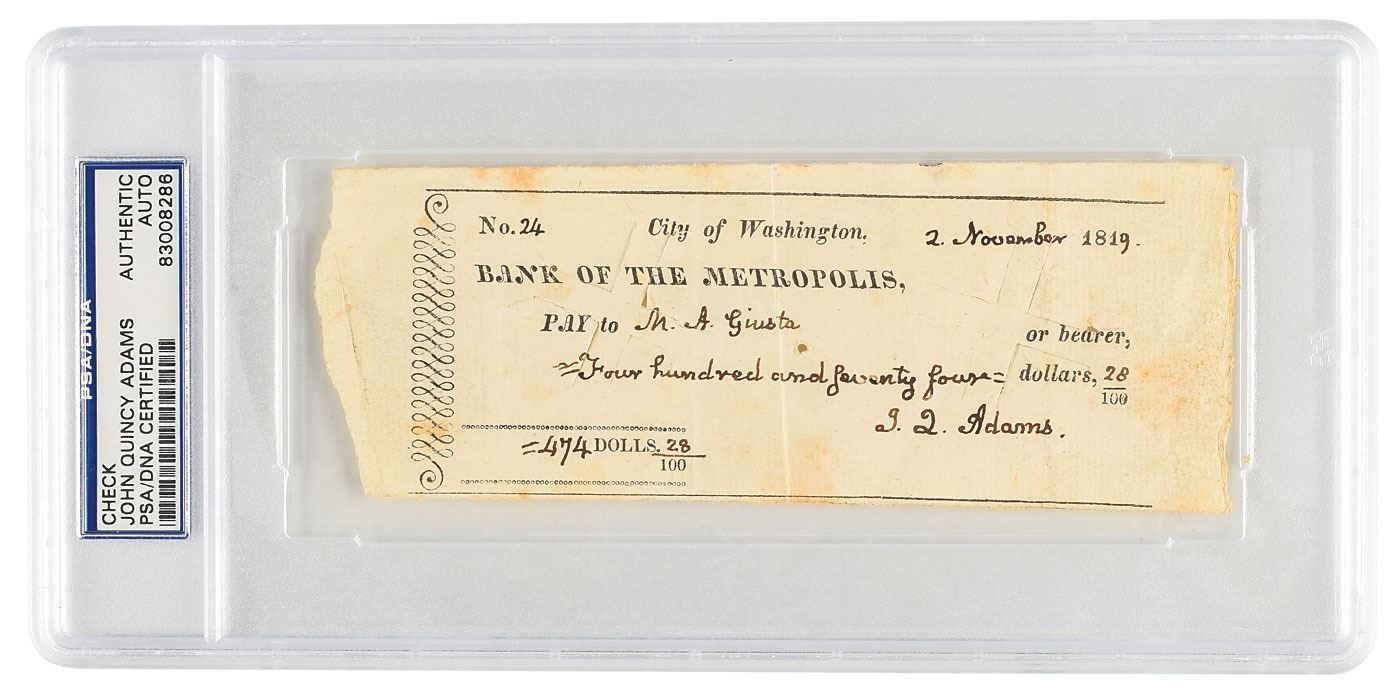 PSA/DNA
CHECK AUTHENTIC
JOHN QUINCY ADAMS AUTO
PSA/DNA CERTIFIED 83008286
No. 24 City of Washington, 2. November 1819.
BANK OF THE METROPOLIS,
PAY to M. A. Giusta
or bearer,
=Four hundred and seventy four= dollars, 28/100
J. Q. Adams.
=474 DOLLS. 28/100